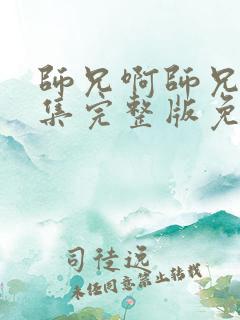 師兄啊師兄
集完整版免
司徒说
未经同意禁止转载